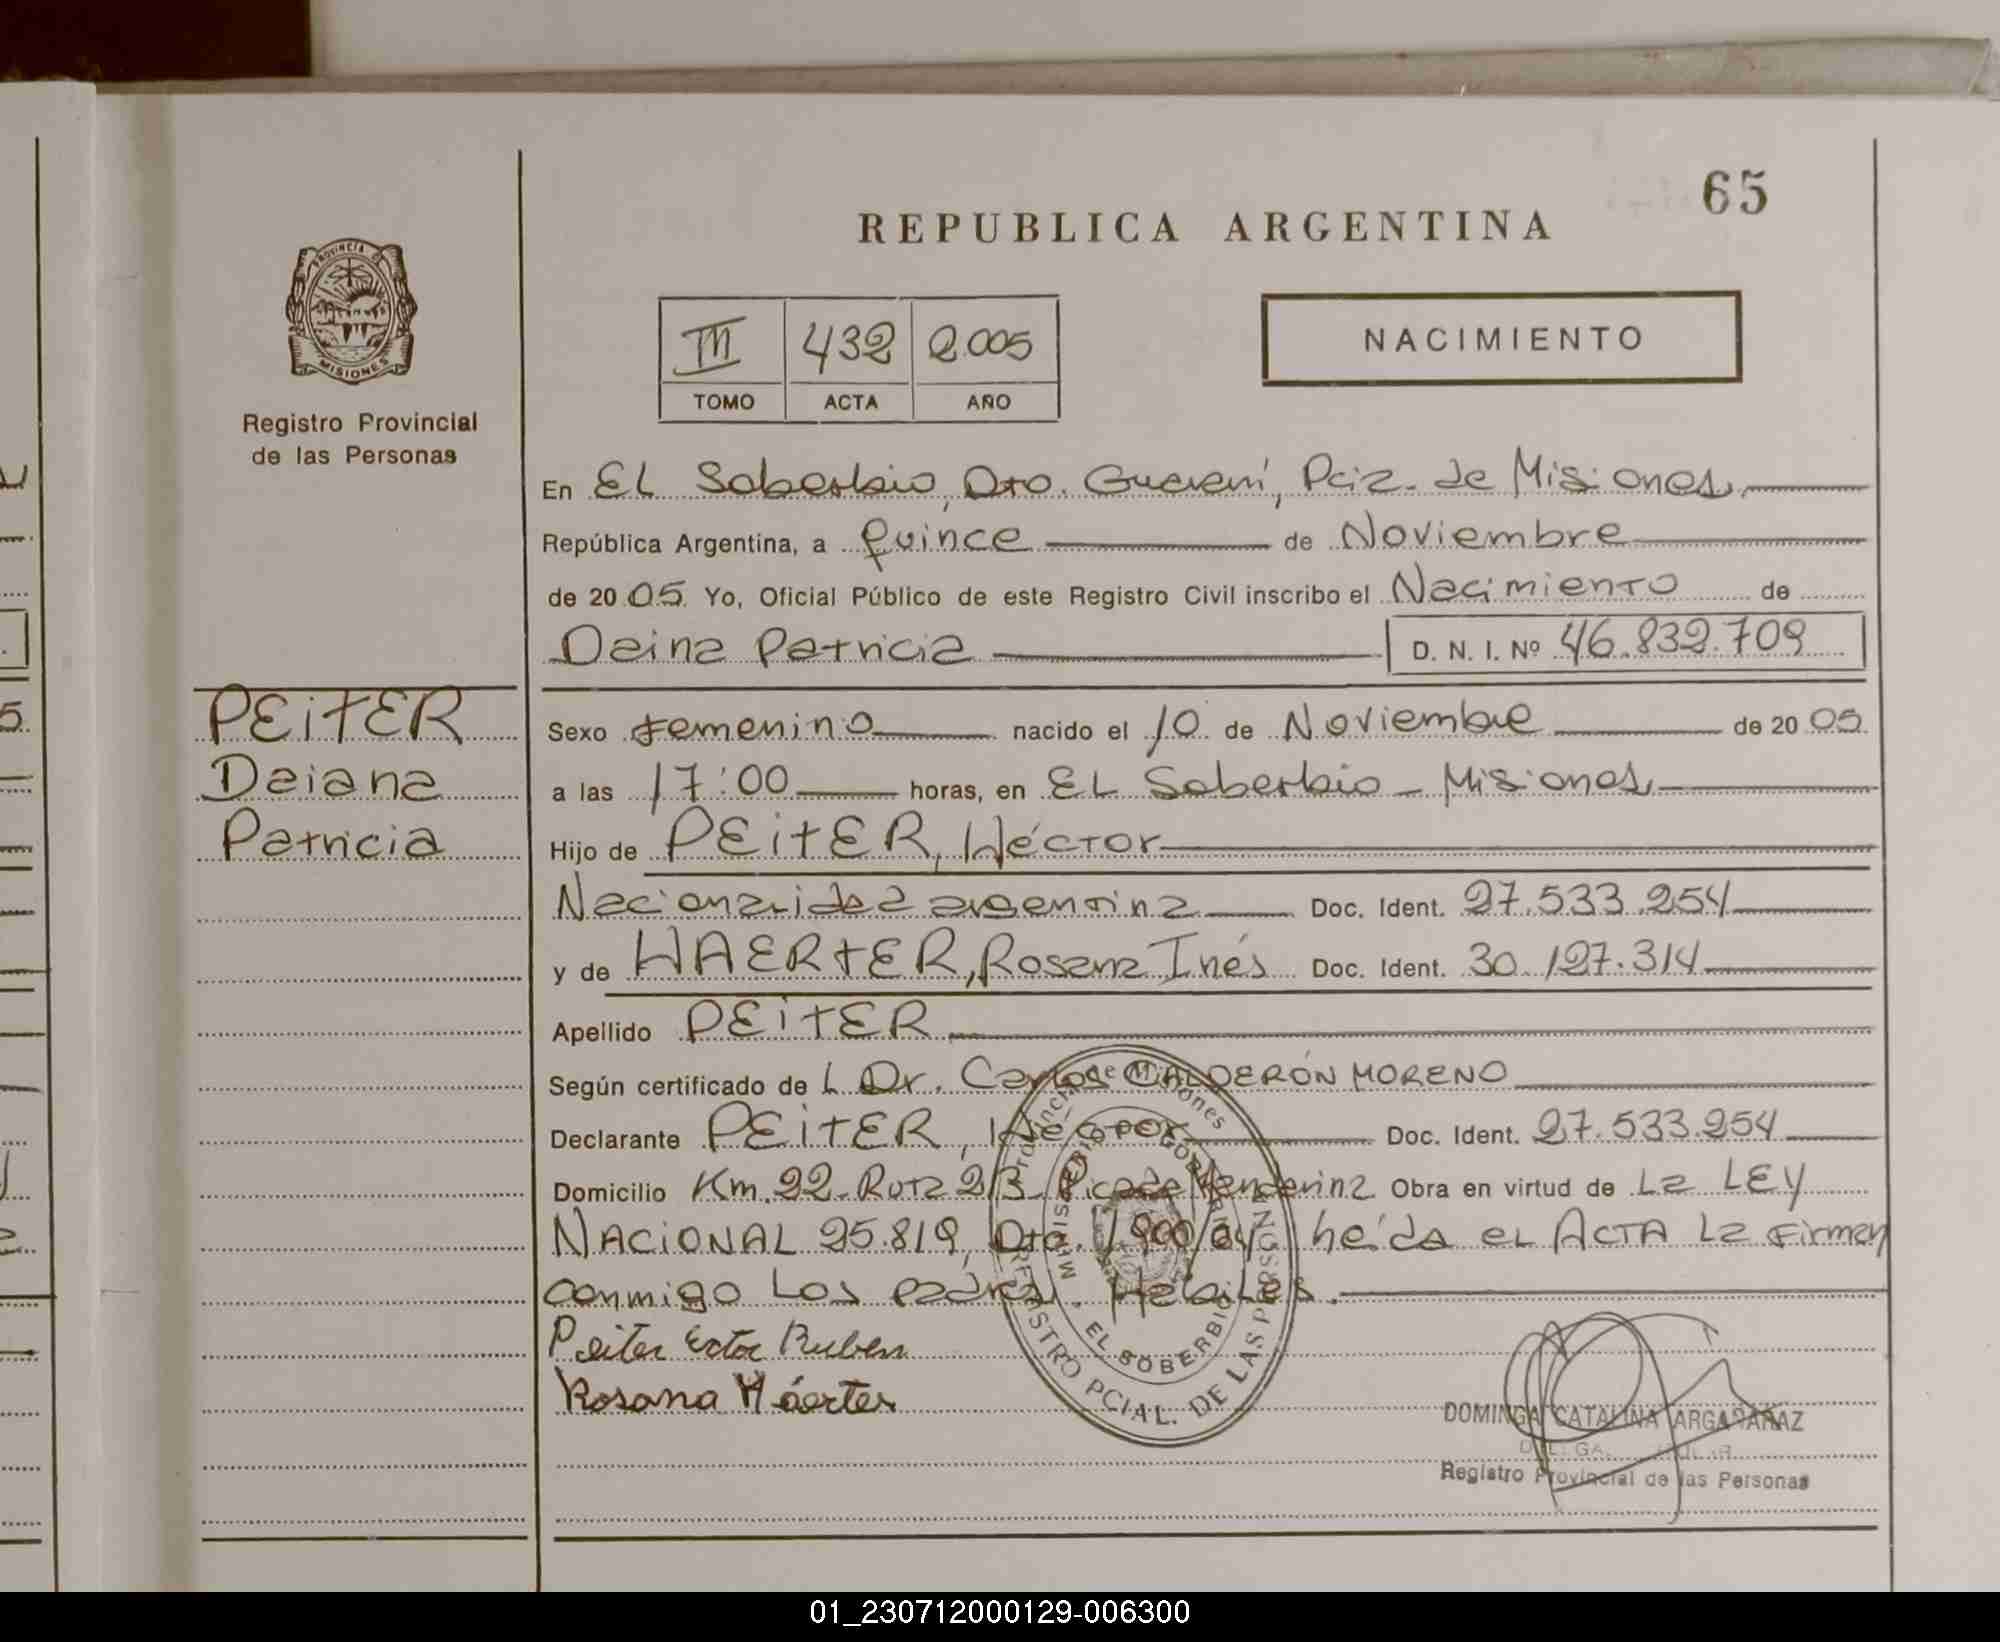 65
REPUBLICA ARGENTINA
PROVINCIA DE
MISIONES
Registro Provincial
de las Personas
III 432 2.005
TOMO ACTA AÑO
NACIMIENTO
En EL Soberbio, Dto. Guaraní, Pcia. de Misiones
República Argentina, a quince de Noviembre
de 2005. Yo, Oficial Público de este Registro Civil inscribo el Nacimiento de
Daina Patricia D. N. I. Nº 46.832.709
PEiTER
Daiana
Patricia
Sexo femenino nacido el 10 de Noviembre de 2005
a las 17:00 horas, en EL Soberbio - Misiones
Hijo de PEiTER, Héctor
Nacionalidad argentina Doc. Ident. 27.533.254
y de HAERTER, Rosana Inés Doc. Ident. 30.127.314
Apellido PEiTER
Según certificado de L Dr. Carlos CALDERÓN MORENO
Declarante PEiTER, Héctor Doc. Ident. 27.533.254
Domicilio Km. 22 - Ruta 213 Picada Obra en virtud de La LEY
NACIONAL 25.819, Dto. 1900/04 Leída el ACTA La Firman
conmigo Los padres. Hábiles.
Peiter Ector Ruben
Rosana Háerter
Provincia de Misiones
MINISTERIO GOBIERNO
EL SOBERBIO
REGISTRO PCIAL. DE LAS PERSONAS
DOMINGA CATALINA ARGAÑARAZ
Registro Provincial de las Personas
01_230712000129-006300